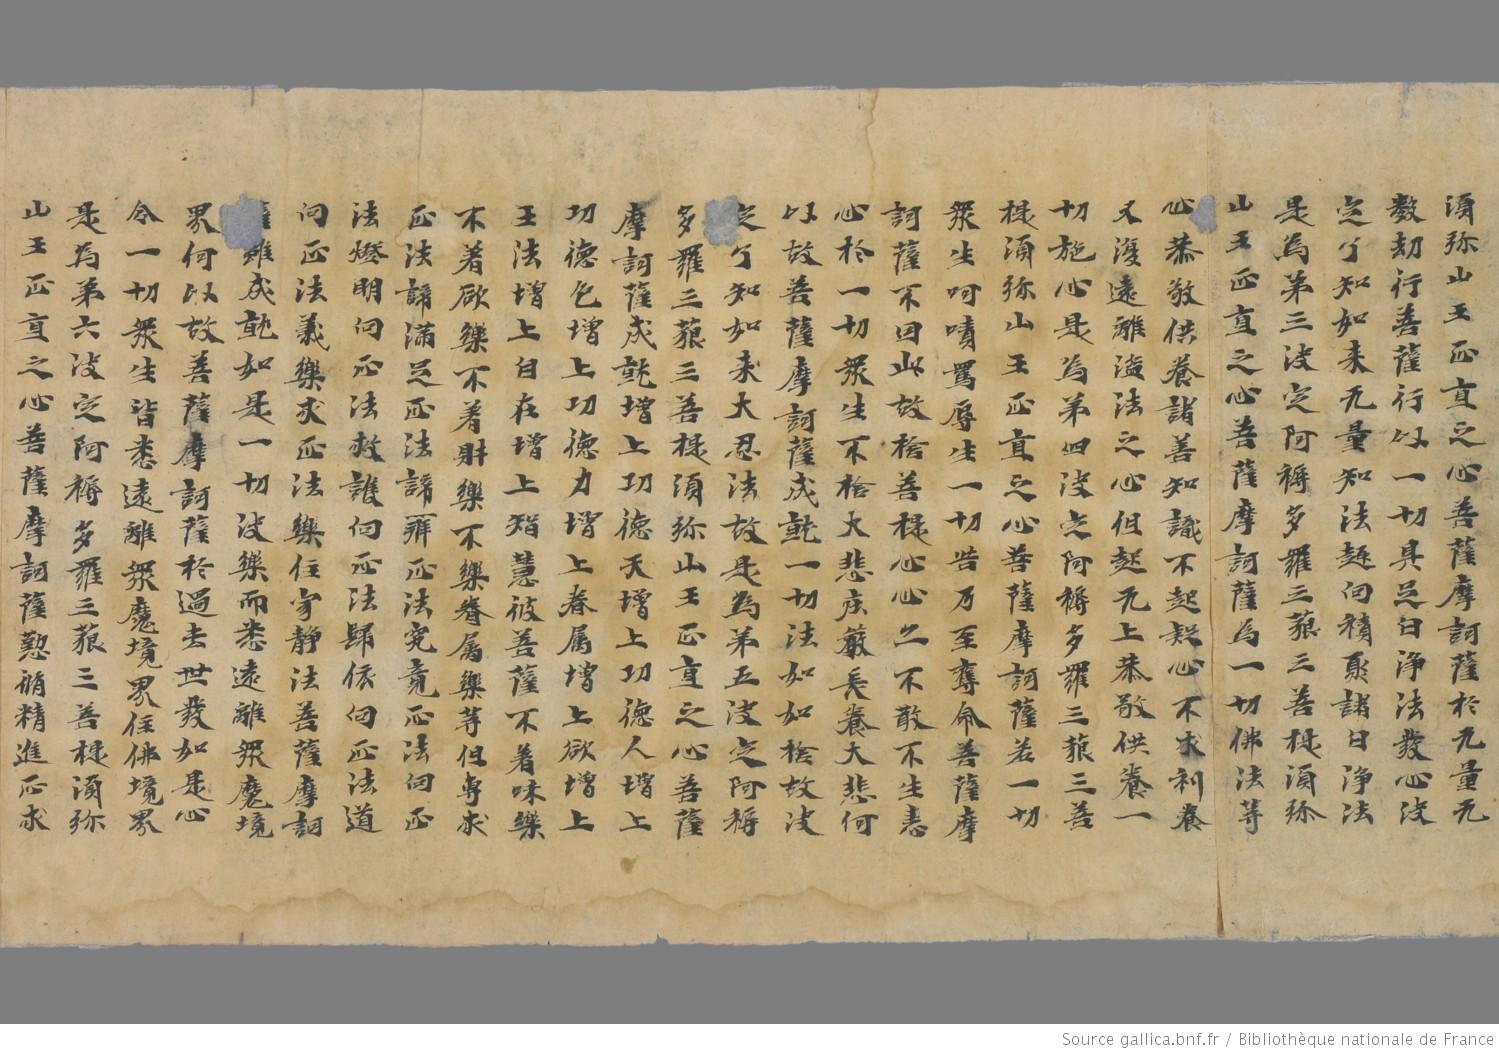 須弥山王正直之心菩薩摩訶薩於无量无
数劫行菩薩行以一切具足白淨法發心决
定了知如来无量知法趣向積聚諸白淨法
是為苐三决定阿耨多羅三菰三菩提須弥
山王正直之心菩薩摩訶薩為一切佛法等
心恭敬供養諸善知識不起疑心不求利養
又復遠離盜法之心但起无上恭敬供養一
切施心是為苐四决定阿耨多羅三菰三菩
提須弥山王正直之心菩薩摩訶薩若一切
衆生呵嘖罵辱生一切苦乃至奪命菩薩摩
訶薩不因此故捨菩提心心之不散不生恚
心於一切衆生不捨大悲庄嚴長養大悲何
以故菩薩摩訶薩成就一切法如如捨故决
定了知如来大忍法故是為苐五决定阿耨
多羅三菰三菩提須弥山王正直之心菩薩
摩訶薩成就增上功德天增上功德人增上
功德色增上功德力增上眷属增上欲增上
王法增上自在增上智慧彼菩薩不著味樂
不著欲樂不著財樂不樂眷属樂等但專求
正法諦滿足正法諦辦正法究竟正法向正
法燈明向正法救護向正法歸依向正法道
向正法義樂求正法樂住寂静法善薩摩訶
薩雖成就如是一切波樂而悉遠離衆魔境
界何以故善薩摩訶薩於過去世發如是心
令一切衆生皆悉遠離衆魔境界住佛境界
是為苐六决定阿耨多羅三菰三菩提須弥
山王正直之心菩薩摩訶薩懃脩精進正求
Source gallica.bnf.fr / Bibliothèque nationale de France